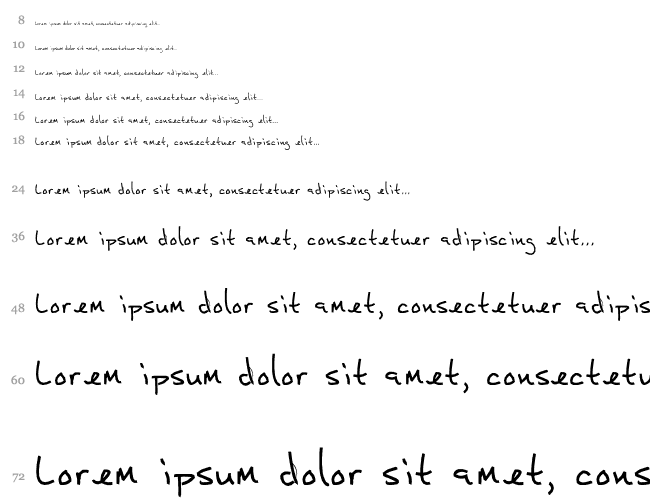 8 Lorem ipsum dolor sit amet, consectetuer adipiscing elit...
10 Lorem ipsum dolor sit amet, consectetuer adipiscing elit...
12 Lorem ipsum dolor sit amet, consectetuer adipiscing elit...
14 Lorem ipsum dolor sit amet, consectetuer adipiscing elit...
16 Lorem ipsum dolor sit amet, consectetuer adipiscing elit...
18 Lorem ipsum dolor sit amet, consectetuer adipiscing elit...
24 Lorem ipsum dolor sit amet, consectetuer adipiscing elit...
36 Lorem ipsum dolor sit amet, consectetuer adipiscing elit...
48 Lorem ipsum dolor sit amet, consectetuer adipis
60 Lorem ipsum dolor sit amet, consectetu
72 Lorem ipsum dolor sit amet, cons